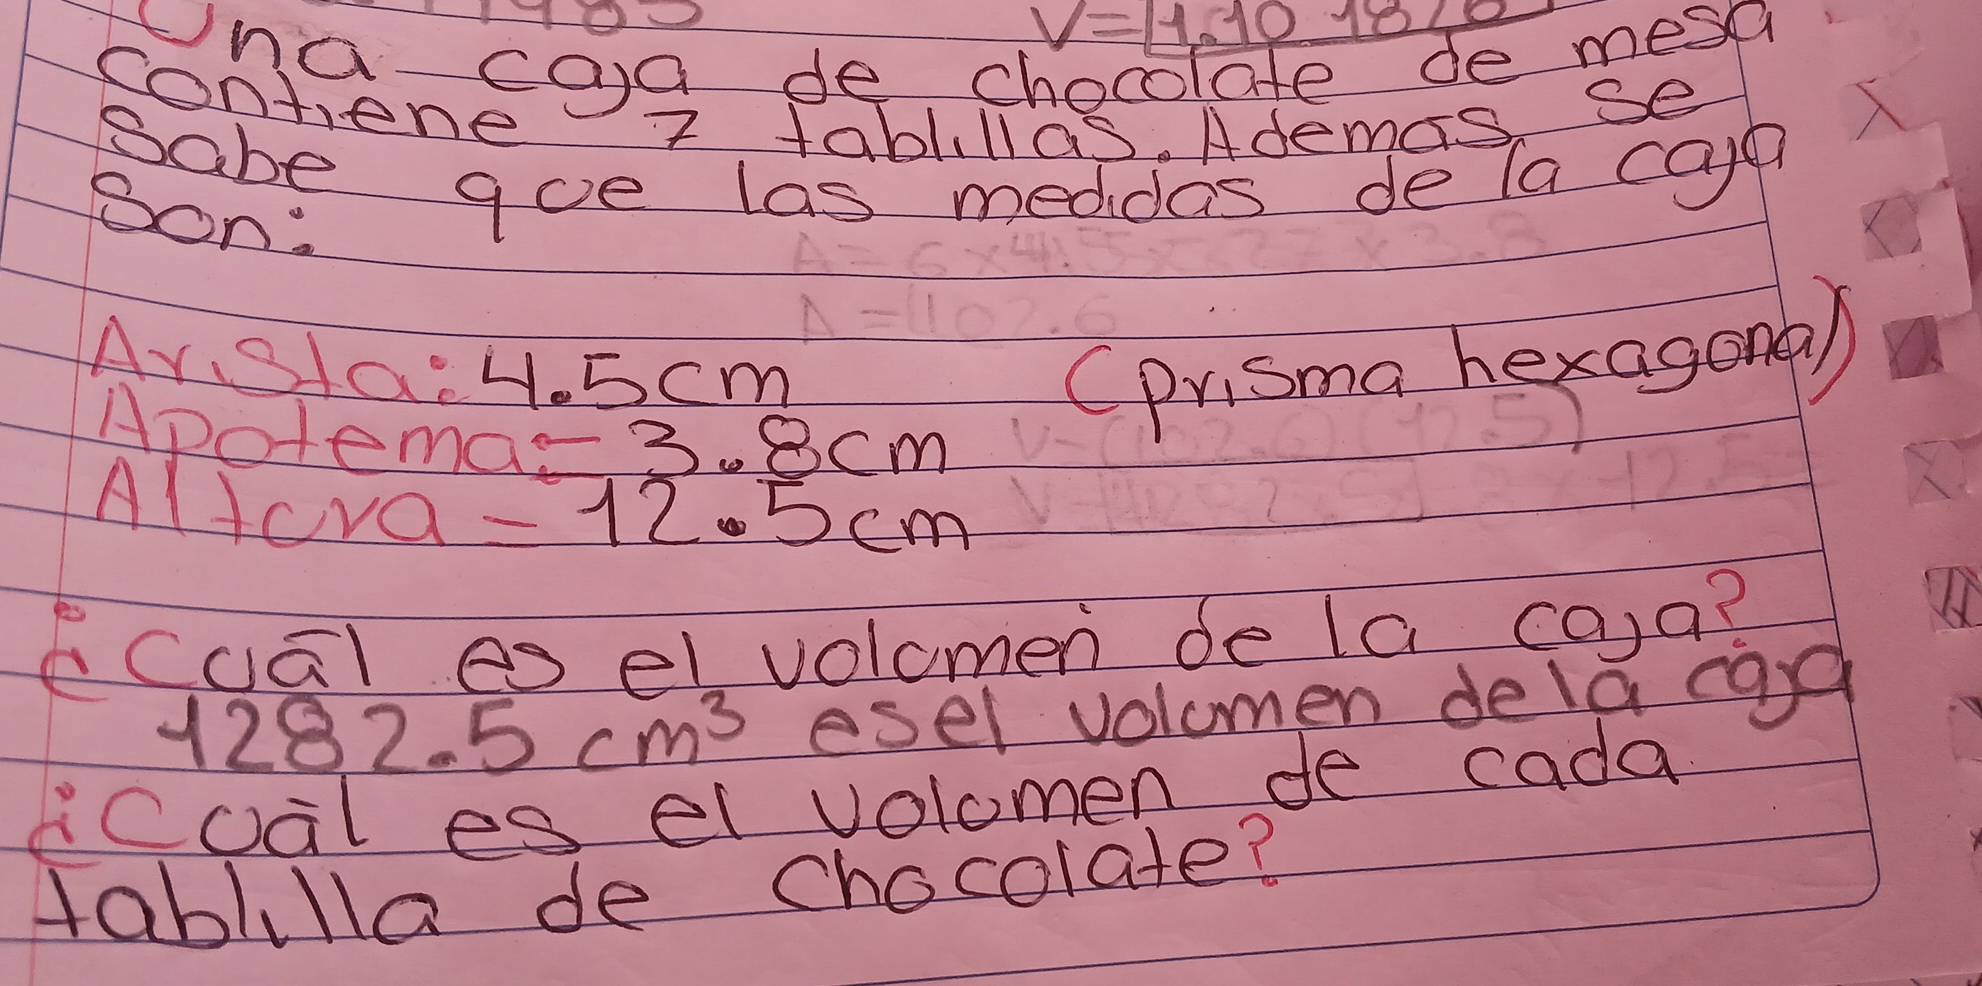 V=
Una caja de chocolate de mesa
contiene 7 tablillas. Ademas se
Sabe que las medidas de la caja
Son:
A=6x4.5x27x3.8
A=102.6
Arista: 4.5cm (prisma hexagonal)
Apotema= 3.8cm V=(102.6)(12.5)
Altura= 12.5cm V=1282.5
¿Cuál es el volumen de la caja?
1282.5 cm³ es el volumen de la caja
¿Cuál es el volumen de cada
tablilla de chocolate?